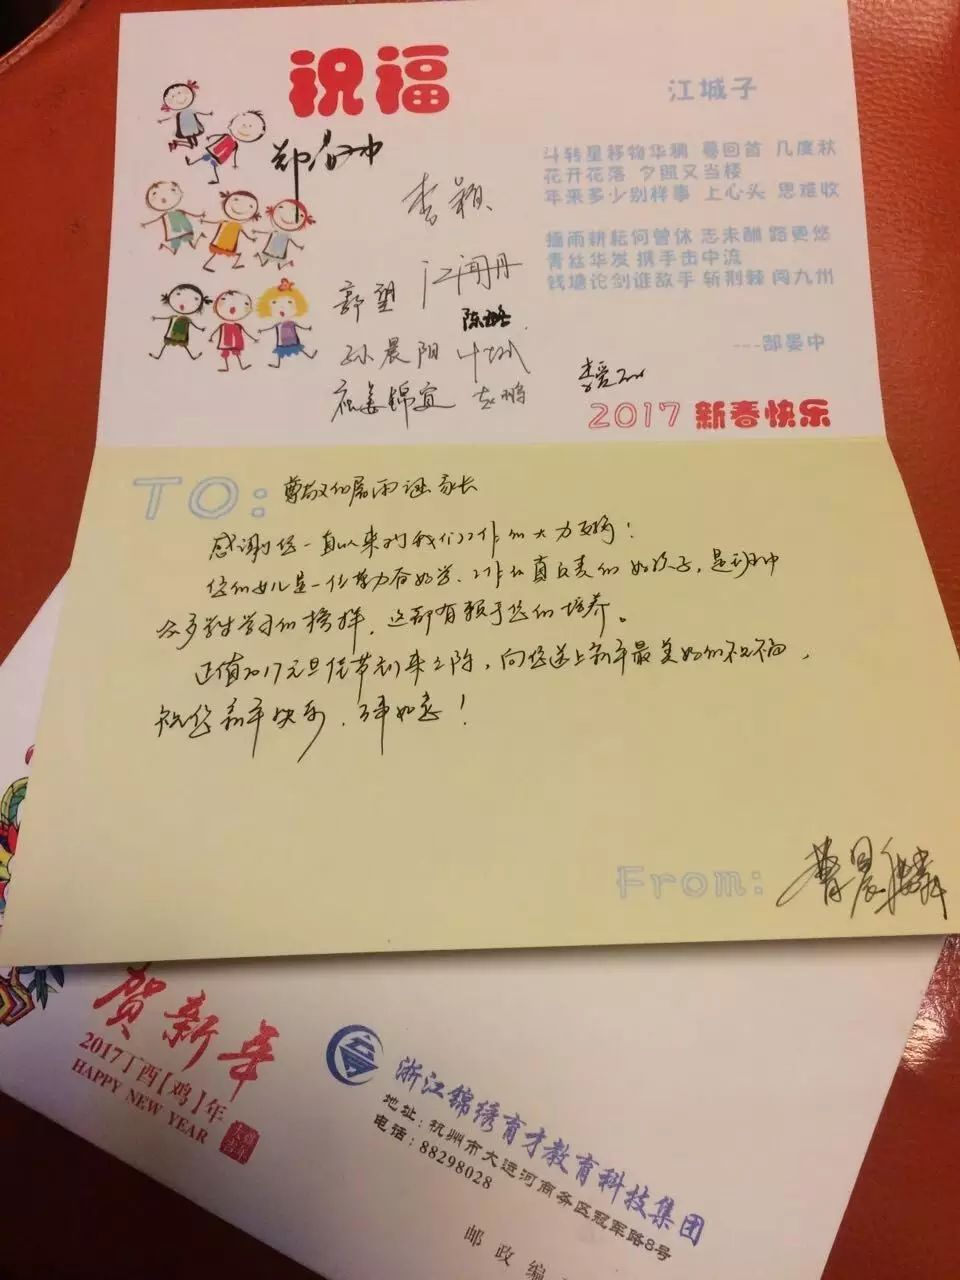 祝福
江城子
斗转星移物华稠 蓦回首 几度秋
花开花落 夕照又当楼
年来多少别样事 上心头 思难收
播雨耕耘何曾休 志未酬 路更悠
青丝华发 携手击中流
钱塘论剑谁敌手 斩荆棘 闯九州
---郜晏中
李颖
郭望 江闻丹
陈璐
孙晨阳
姜锦宜 赵鹏
2017 新春快乐
TO: 尊敬的 家长
感谢您一直以来对我们工作的大力支持！
您的女儿是一位努力好学、工作认真负责的好孩子，是班中
众多学生学习的榜样，这都有赖于您们的培养。
正值2017元旦佳节到来之际，向您送上新年最美好的祝福，
祝您新年快乐，万事如意！
From:
贺新年
2017丁酉【鸡】年
HAPPY NEW YEAR
浙江锦绣育才教育科技集团
地址：杭州市大运河商务区冠军路8号
电话：88298028
邮政编